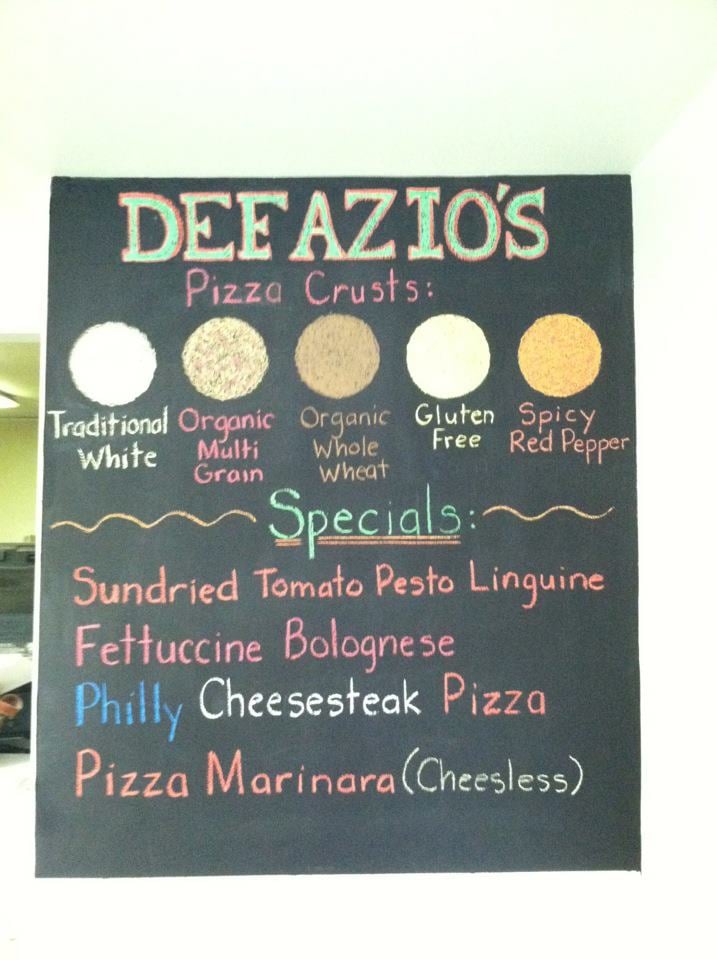 DEFAZIO'S
Pizza Crusts:
Traditional White
Organic Multi Grain
Organic Whole Wheat
Gluten Free
Spicy Red Pepper
Specials:
Sundried Tomato Pesto Linguine
Fettuccine Bolognese
Philly Cheesesteak Pizza
Pizza Marinara (Cheesless)